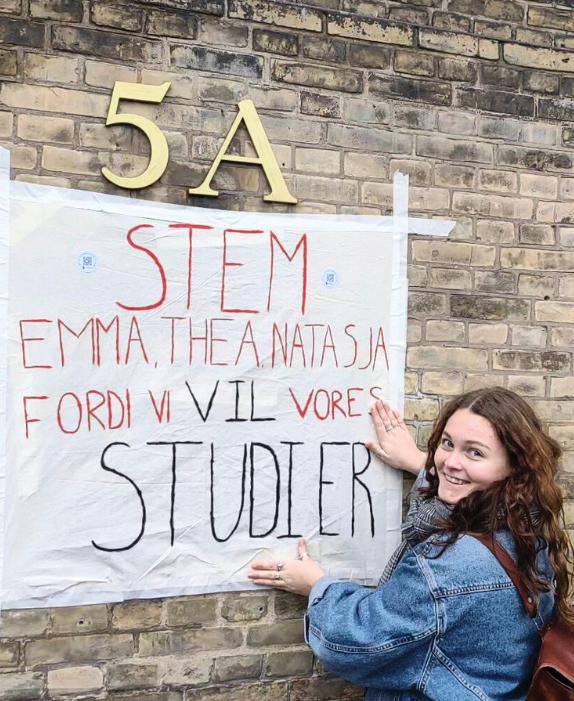 5A
STEM
EMMA, THEA, NATASJA
FORDI VI VIL VORES
STUDIER